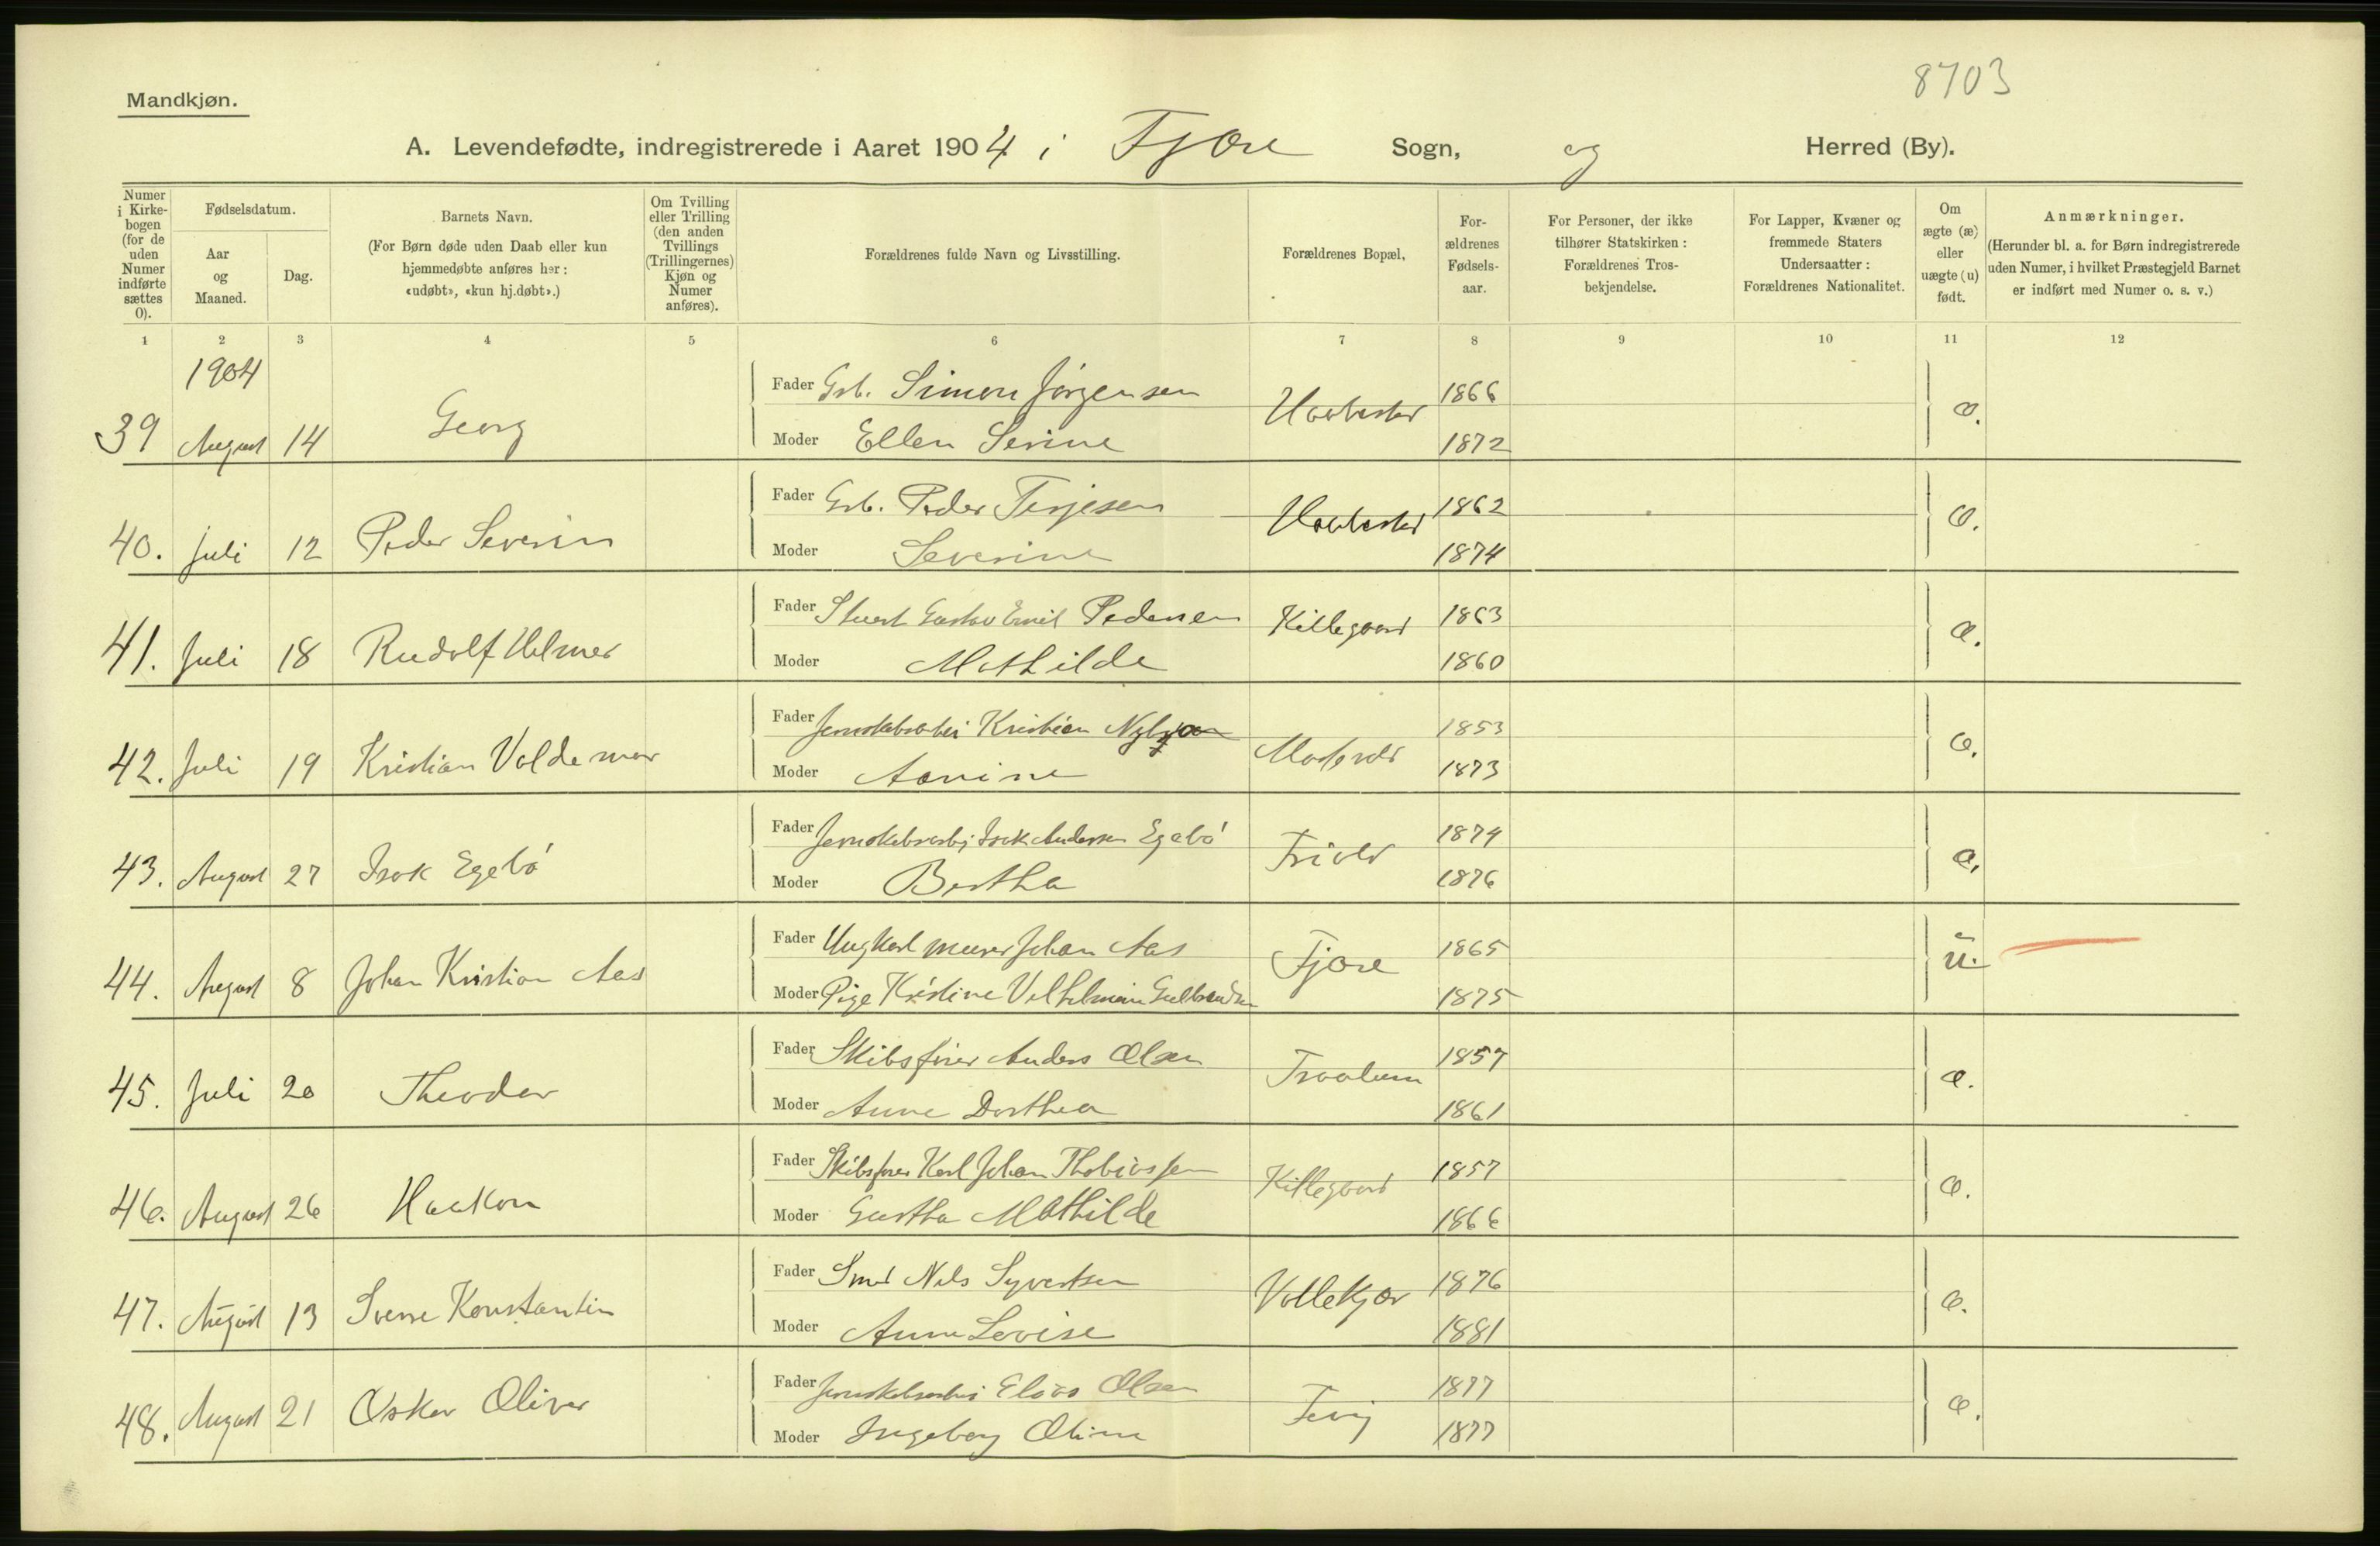 8703
Mandkjøn.
A. Levendefødte, indregistrerede i Aaret 1904 i Fjære Sogn, og Herred (By).
Numer i Kirkebogen (for de uden Numer indførte sættes 0).
Fødselsdatum.
Aar og Maaned.
Dag.
Barnets Navn.
(For Børn døde uden Daab eller kun hjemmedøbte anføres her: «udøbt», «kun hj.døbt».)
Om Tvilling eller Trilling (den anden Tvillings (Trillingernes) Kjøn og Numer anføres).
Forældrenes fulde Navn og Livsstilling.
Forældrenes Bopæl,
Forældrenes Fødselsaar.
For Personer, der ikke tilhører Statskirken: Forældrenes Trosbekjendelse.
For Lapper, Kvæner og fremmede Staters Undersaatter: Forældrenes Nationalitet.
Om ægte (æ) eller uægte (u) født.
Anmærkninger.
(Herunder bl. a. for Børn indregistrerede uden Numer, i hvilket Præstegjeld Barnet er indført med Numer o. s. v.)
1 2 3 4 5 6 7 8 9 10 11 12
1904
39 August 14 Georg Fader Grb. Simon Jörgensen 1866 æ.
Moder Ellen Serine 1872
40. Juli 12 Peder Severin Fader Grb. Peder Terjesen 1862 æ.
Moder Severine 1874
41. Juli 18 Rudolf Helmer Fader Stuert Gustav Emil Pedersen Killegaard 1863 æ.
Moder Mathilde 1860
42. Juli 19 Kristian Valdemar Fader Kristian 1853 æ.
Moder 1873
43. August 27 Isak Egebö Fader Isak Andersen Egebö Trivld 1874 æ.
Moder Bertha 1876
44. August 8 Johan Kristian Aas Fader Ungkarl murer Johan Aas Fjære 1865 u.
Moder Pige Kristine Vilhelmine Gulbrandsen 1875
45. Juli 20 Theodor Fader Skibsförer Anders Olsen 1857 æ.
Moder Anne Dorthea 1861
46. August 26 Haakon Fader Skibsförer Karl Johan Thobiassen Killegaard 1857 æ.
Moder Gurtha Mathilde 1866
47. August 13 Sverre Konstantin Fader Smed Nils Syvertsen Vollekjær 1876 æ.
Moder Anne Lovise 1881
48. August 21 Oskar Oliver Fader Elias Olsen Fevig 1877 æ.
Moder Ingeborg Oline 1877